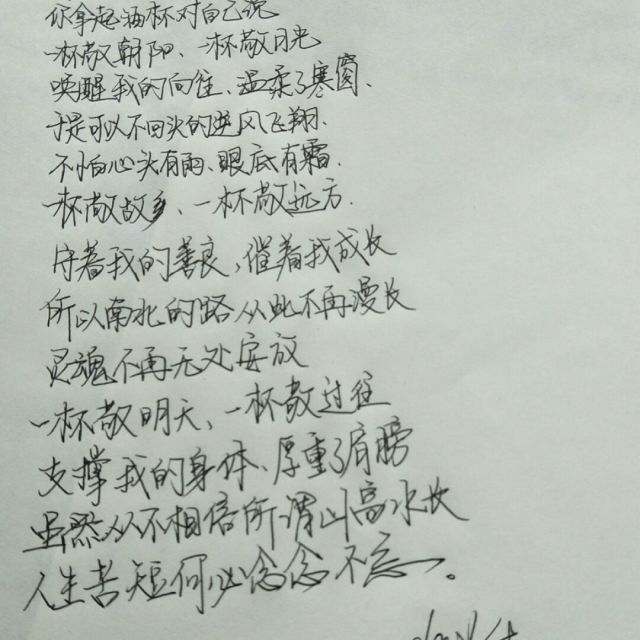 你拿起酒杯对自己说
一杯敬朝阳、一杯敬月光
唤醒我的向往、温柔了寒窗、
于是可以不回头的逆风飞翔.
不怕心头有雨、眼底有霜.
一杯敬故乡、一杯敬远方.
守着我的善良,催着我成长
所以南北的路从此不再漫长
灵魂不再无处安放
一杯敬明天、一杯敬过往
支撑我的身体、厚重了肩膀
虽然从不相信所谓山高水长
人生苦短何必念念不忘。